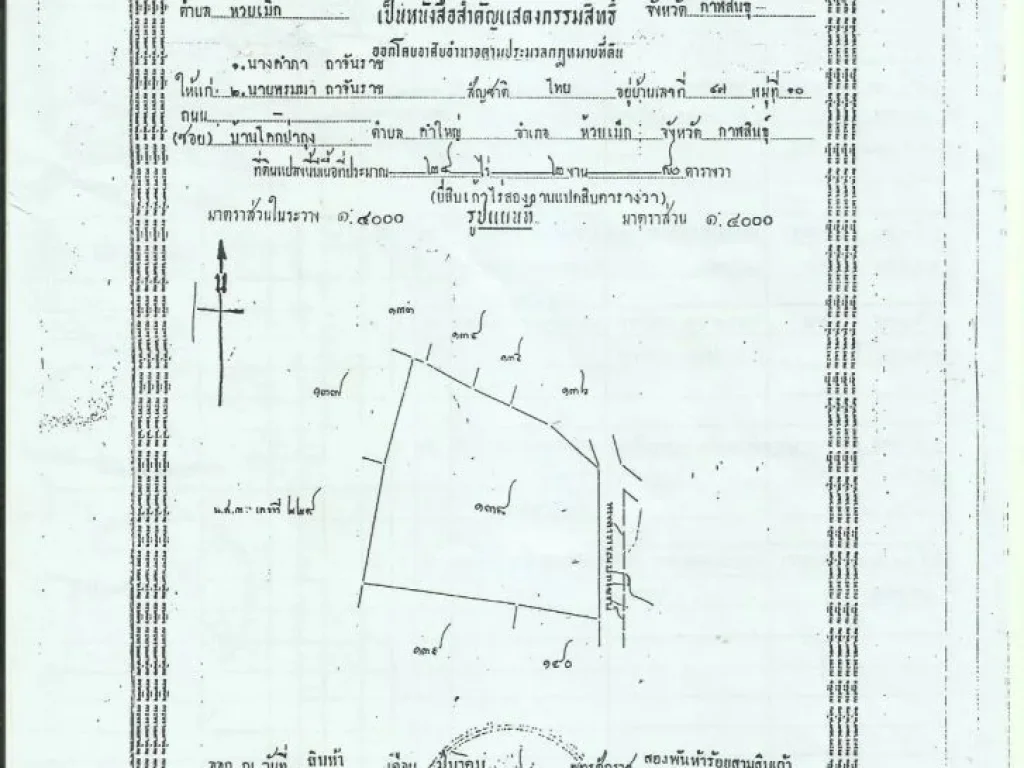 ตำบล ห้วยเม็ก เป็นหนังสือสำคัญแสดงกรรมสิทธิ์ จังหวัด กาฬสินธุ์
ออกโดยอาศัยอำนาจตามประมวลกฎหมายที่ดิน
๑. นางคำภา ถาจันราช
ให้แก่ ๒. นายพรมมา ถาจันราช สัญชาติ ไทย อยู่บ้านเลขที่ ๔๗ หมู่ที่ ๑๐
ถนน –
(ซอย) บ้านโคกป่ากุง ตำบล คำใหญ่ อำเภอ ห้วยเม็ก จังหวัด กาฬสินธุ์
ที่ดินแปลงนี้มีเนื้อที่ประมาณ ๒๙ ไร่ ๒ งาน ๘๐ ตารางวา
(ยี่สิบเก้าไร่สองงานแปดสิบตารางวา)
มาตราส่วนในระวาง ๑:๔๐๐๐ รูปแผนที่ มาตราส่วน ๑:๔๐๐๐
น
๑๓๗
น.ส.๓. เลขที่ ๒๒๙
๑๓๘
๑๔๐
ออก ณ วันที่ สิบห้า เดือน มีนาคม พุทธศักราช สองพันห้าร้อยสามสิบเก้า